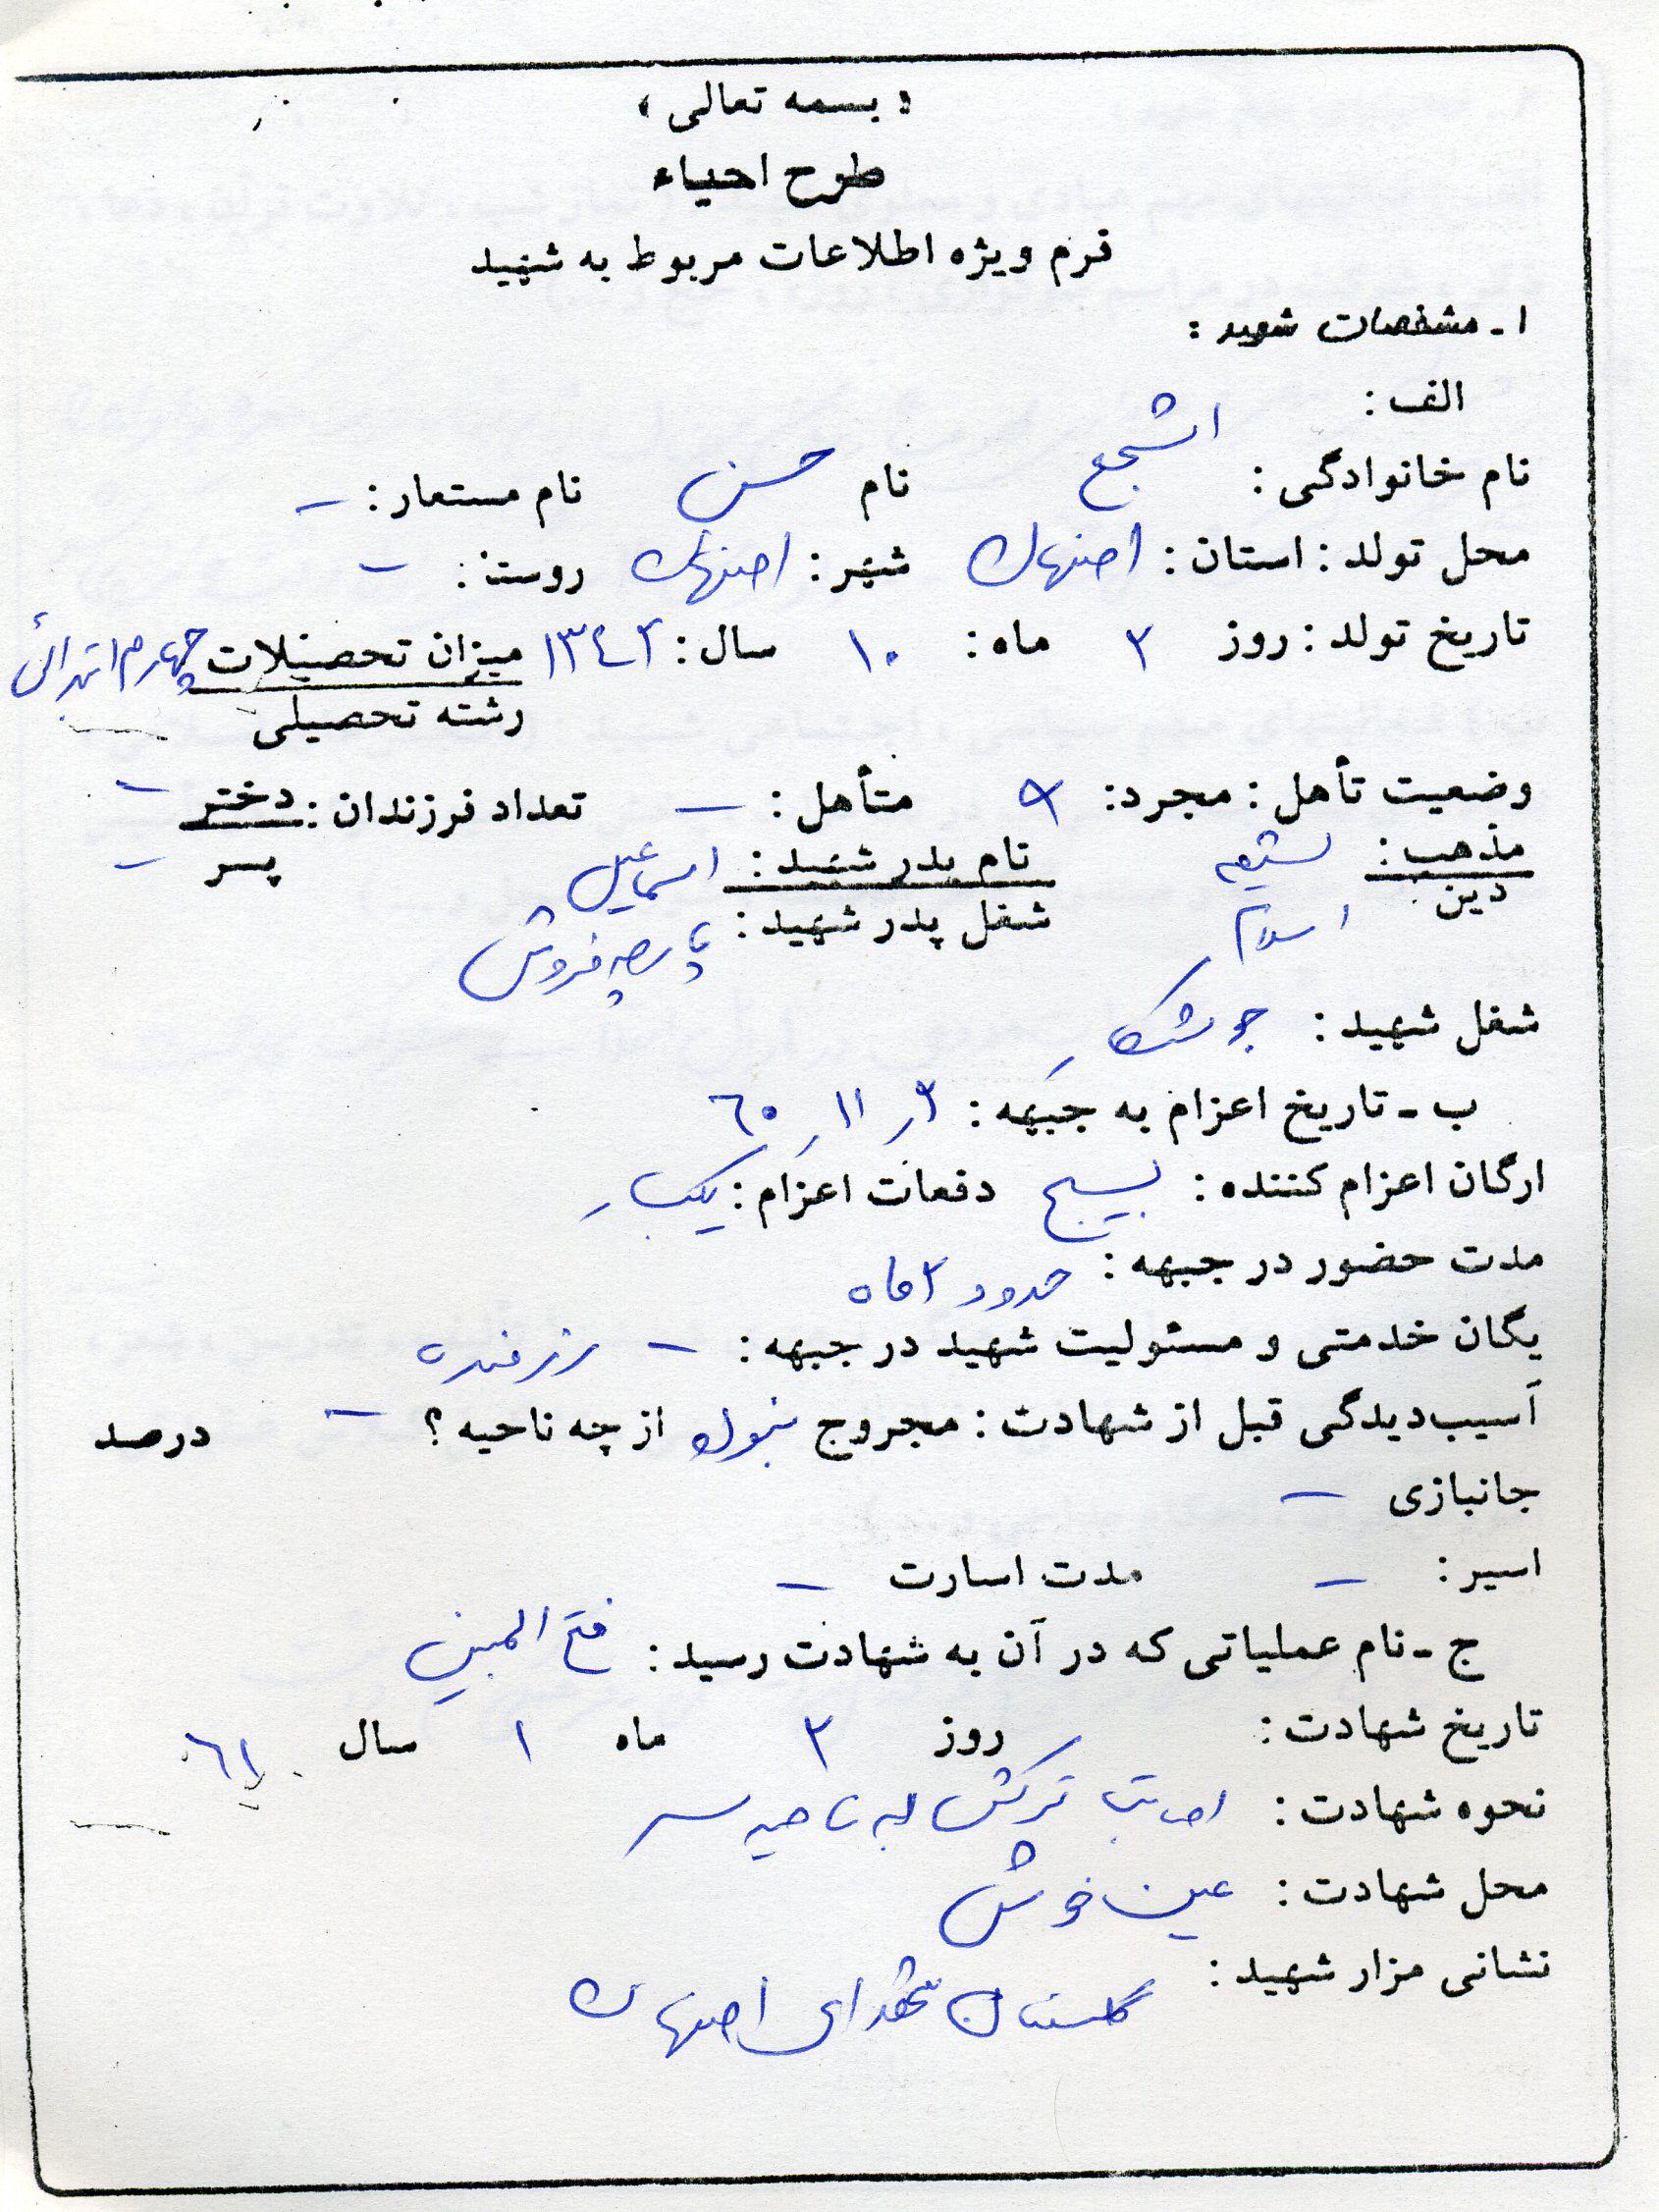 « بسمه تعالی »
طرح احیاء
فرم ویژه اطلاعات مربوط به شهید
۱ ـ مشخصات شهید :
الف :
نام خانوادگی : اشجع نام حسن نام مستعار : –
محل تولد : استان : اصفهان شهر : اصفهان روستا : –
تاریخ تولد : روز ۲ ماه : ۱۰ سال : ۱۳۴۲ میزان تحصیلات چهارم ابتدائی
رشته تحصیلی
وضعیت تأهل : مجرد : متأهل : – تعداد فرزندان : دختر –
پسر –
مذهب : شیعه نام پدر شهید : اسماعیل
دین : اسلام شغل پدر شهید : پارچه فروش
شغل شهید : جوشکار
ب ـ تاریخ اعزام به جبهه : ۱۱ ر ۶۰
ارگان اعزام کننده : بسیج دفعات اعزام : یکبار
مدت حضور در جبهه : حدود ۲ ماه
یگان خدمتی و مسئولیت شهید در جبهه : – رزمنده
آسیب‌دیدگی قبل از شهادت : مجروح نبودن از چه ناحیه ؟ – درصد
جانبازی –
اسیر : – مدت اسارت –
ج ـ نام عملیاتی که در آن به شهادت رسید : فتح المبین
تاریخ شهادت : روز ۲ ماه ۱ سال ۶۱
نحوه شهادت : اصابت ترکش به ناحیه سر
محل شهادت : عین خوش
نشانی مزار شهید : گلستان شهدای اصفهان